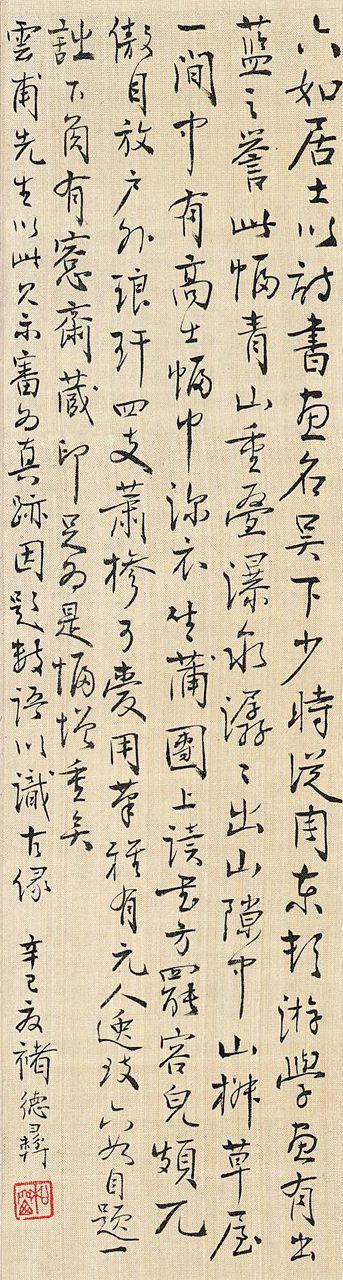 六如居士以詩書畫名吳下少時從周東邨游學畫有出
藍之譽此幀青山重疊瀑泉潺〻出山隙中山椒草屋
一間中有高士幅巾深衣坐蒲團上讀書方罷容皃頗兀
傲自放戶外琅玕四支蕭槮可愛用筆雅有元人逸致六如自題一
詩下角有愙齋藏印足為是幀增重矣
雲甫先生以此見示審為真跡因題數語以識古緣 辛巳夏褚德彝